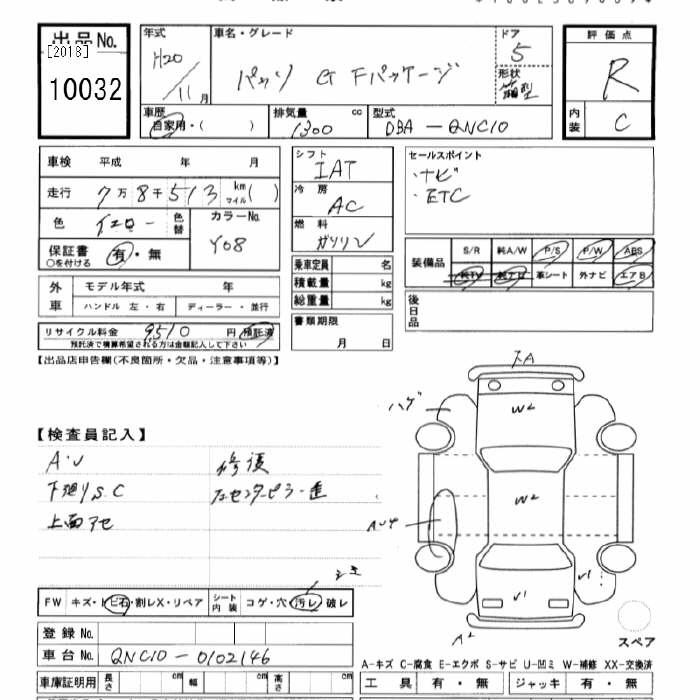 出品No.
[2018]
10032
年式
H20/11月
車名・グレード
パッソ G Fパッケージ
ドア
5
形状
箱型
評価点
R
内装
C
車歴
自家用・( )
排気量
1300 cc
型式
DBA-QNC10
車検 平成 年 月
走行 7万8千513 km マイル( )
色 イエロー 色替
カラーNo.
Y08
保証書 有・無
○を付ける
外車
モデル年式 年
ハンドル 左・右 ディーラー・並行
リサイクル料金 9510 円 預託済
預託済で積算希望される方は金額記入して下さい
シフト
IAT
冷房
AC
燃料
ガソリン
乗車定員 名
積載量 kg
総重量 kg
書類期限
月 日
セールスポイント
・ナビ
・ETC
装備品
S/R 純A/W P/S P/W ABS
純TV 純ナビ 革シート 外ナビ エアB
後日品
【出品店申告欄(不良箇所・欠品・注意事項等)】
【検査員記入】
A・U 修復
下廻りS.C
上面アセ
FW キズ・トビ石・割レX・リペア シート内装 コゲ・穴・汚レ・破レ
登録No.
車台No. QNC10-0102146
車庫証明用 長さ cm 幅 cm 高さ cm
ハゲ
W2
W2
V1
V1
A2
スペア
A-キズ C-腐食 E-エクボ S-サビ U-凹ミ W-補修 XX-交換済
工具 有・無 ジャッキ 有・無